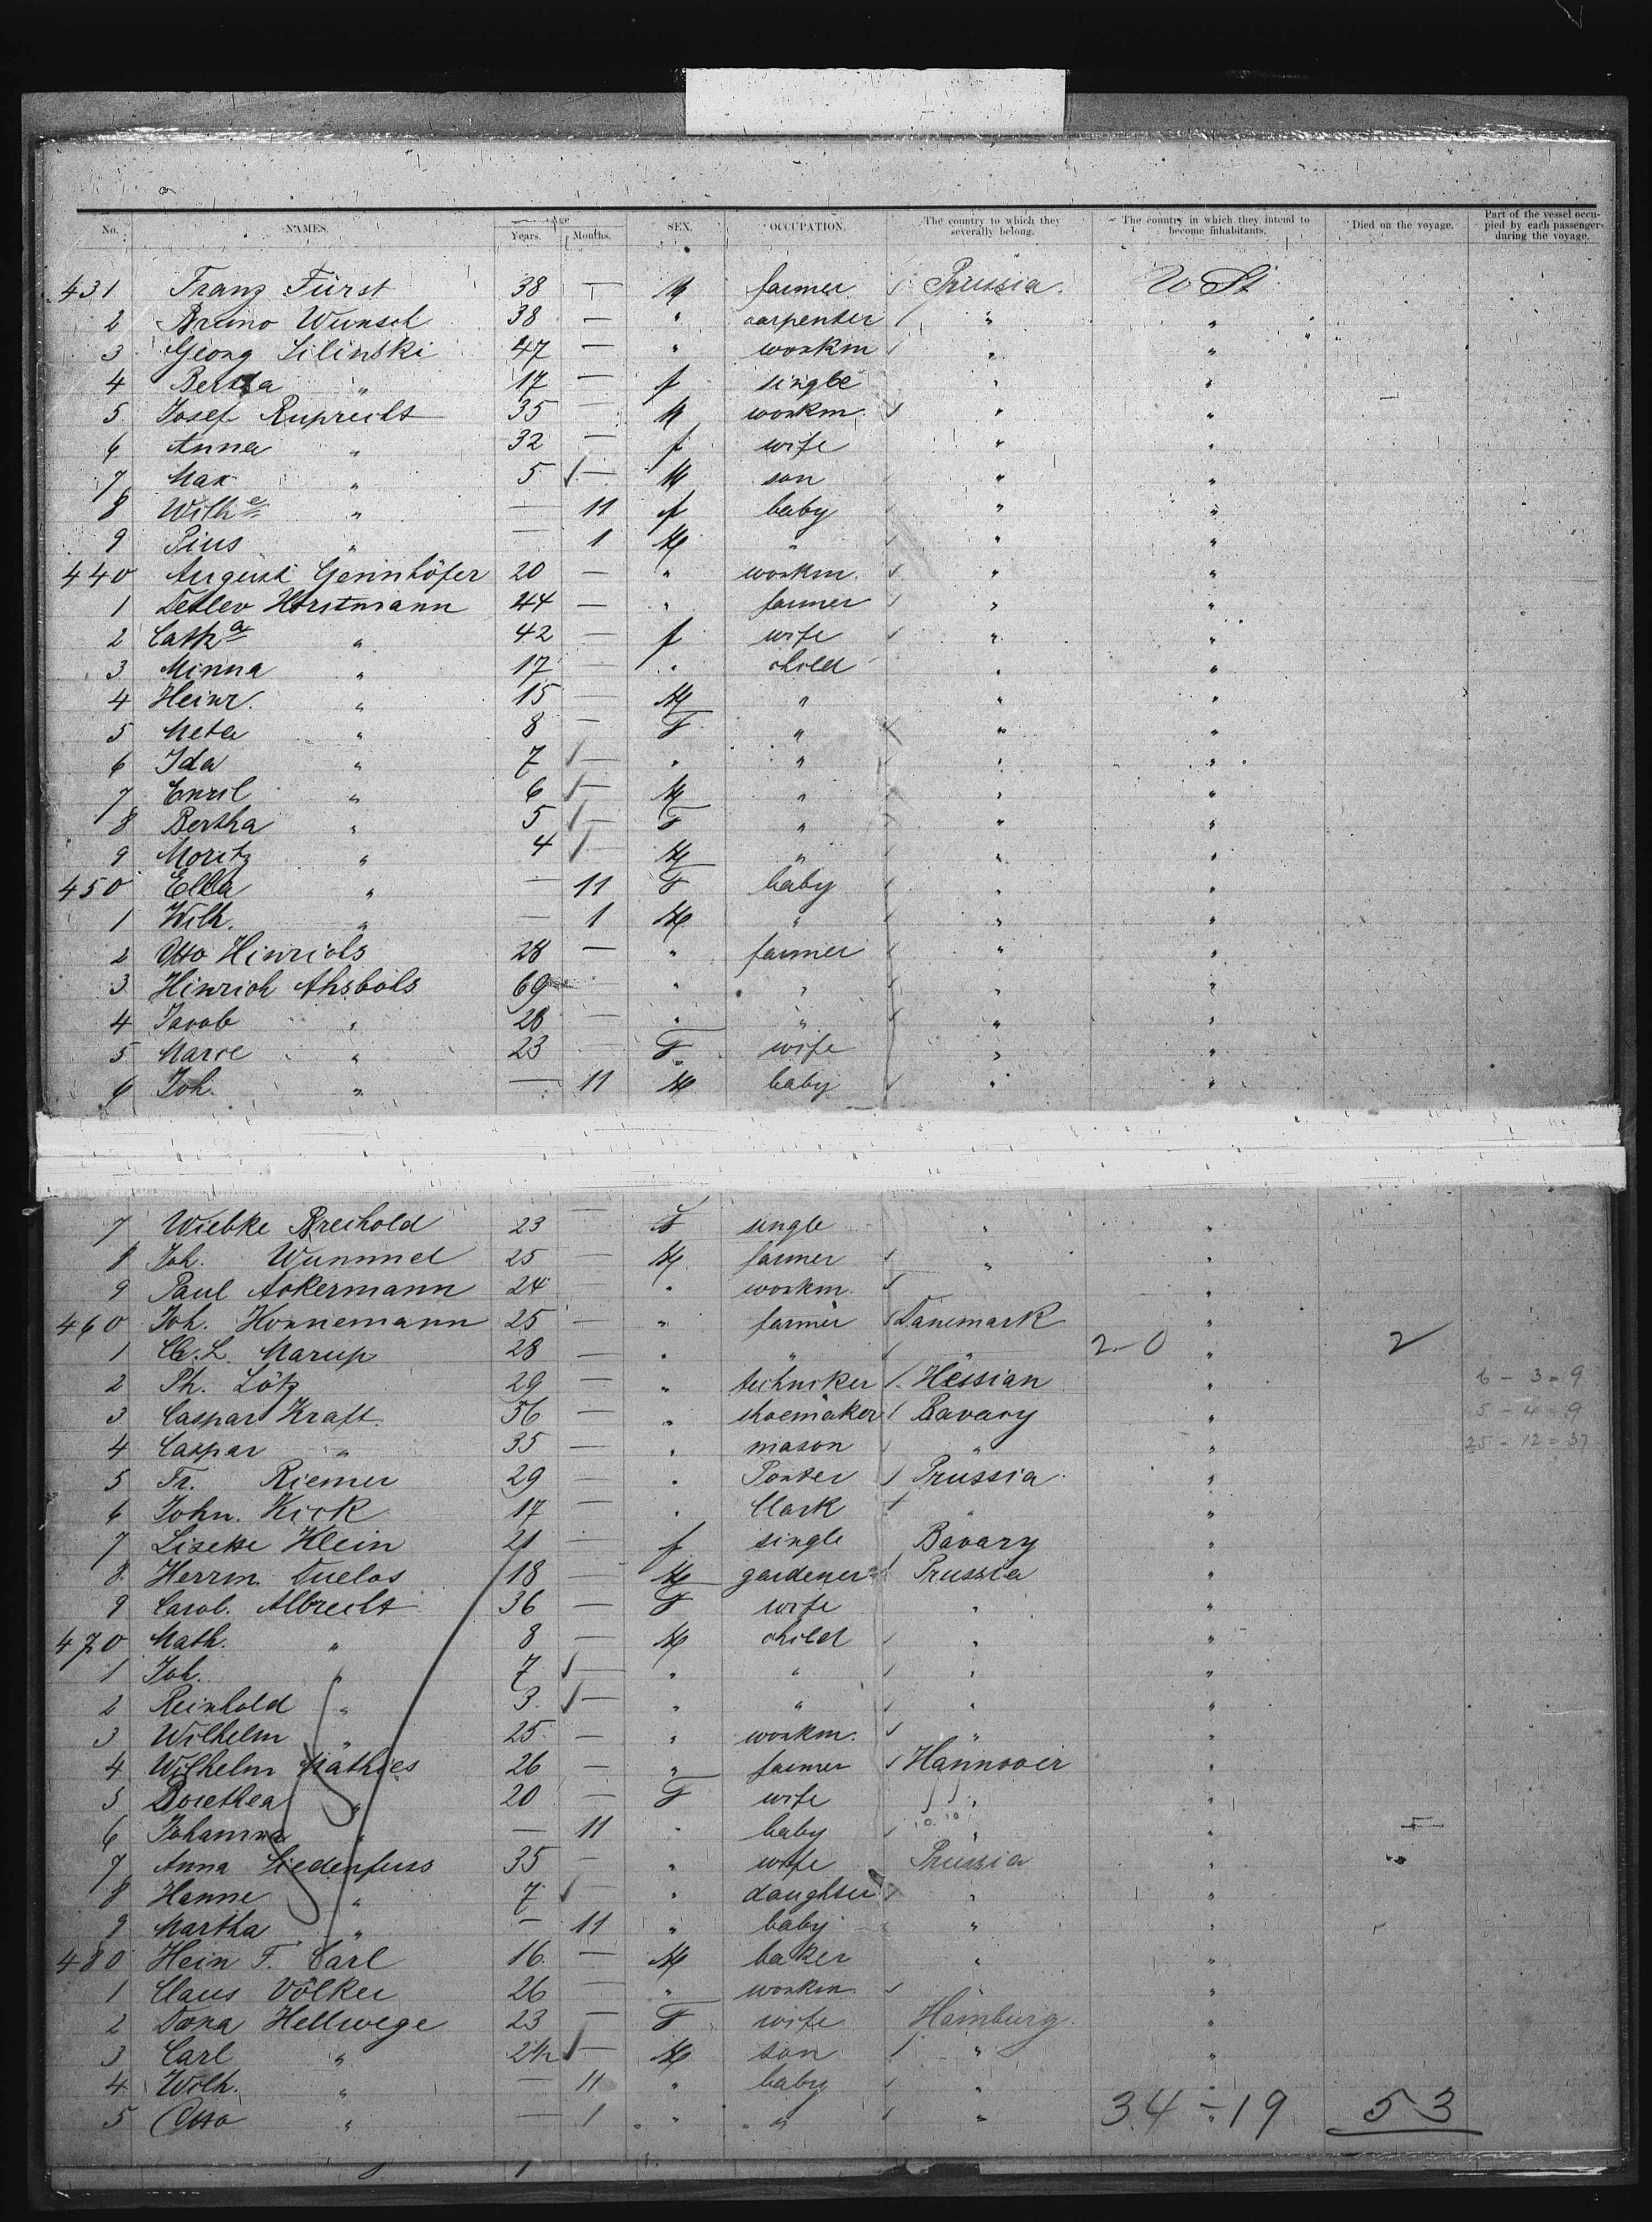 No. NAMES. Age Years. Months. SEX. OCCUPATION. The country to which they severally belong. The country in which they intend to become inhabitants. Died on the voyage. Part of the vessel occupied by each passenger during the voyage.
431 Franz Fürst 38 — M farmer / Prussia. U. St.
2 Bruno Wunsch 38 — " carpenter / " "
3 Georg Silinski 47 — " workm / " "
4 Bertha " 17 — f single " "
5 Josef Ruprecht 35 — M workm. / " "
6 Anna " 32 — f wife " "
7 Max " 5 / — M son / " "
8 Wilhe " — 11 f baby / " "
9 Pius " — 1 M " / " "
440 August Gerinhöfer 20 — " workm. / " "
1 Detlev Horstmann 44 — " farmer / " "
2 Catha " 42 — f wife / " "
3 Minna " 17 — " child " "
4 Heinr. " 15 — M " " "
5 Meta " 8 — F " / " "
6 Ida " 7 / — " " / " "
7 Emil " 6 / — M " / " "
8 Bertha " 5 / — F " / " "
9 Moritz " 4 / — M " / " "
450 Ella " — 11 F baby / " "
1 Wilh. " — 1 M " / " "
2 Otto Hinrichs 28 — " farmer / " "
3 Hinrich Ahsbahs 69 — " " / " "
4 Jacob " 28 " " / " "
5 Marie " 23 — F wife " "
6 Joh. " — 11 M baby / " "
7 Wiebke Breihold 23 — F single " "
8 Joh. Wummel 25 — M farmer / " "
9 Paul Ackermann 24 — " workm. / "
460 Joh. Honnemann 25 — " farmer / Danemark "
1 L. Marup 28 — " " / " 2-0 " 2
2 Ph. Lötz 29 — " techniker / Hessian " 6 - 3 = 9
3 Caspar Kraft 56 — " shoemaker / Bavary " 5 - 4 = 9
4 Caspar " 35 — " mason / " " 25 - 12 = 37
5 Fr. Riemer 29 — " / Prussia "
6 John. Kick 17 — " Clark / " "
7 Lisette Klein 21 — f single Bavary "
8 Herrm. Duclos 18 — M gardener / Prussia "
9 Carol. Albrecht 36 — F wife " "
470 Math. " 8 — M child / " "
1 Joh. " 7 / — " " / " "
2 Reinhold " 3 / — " " / " "
3 Wilhelm " 25 — " workm. / " "
4 Wilhelm Mathies 26 — " farmer / Hannover "
5 Dorethea " 20 — F wife " "
6 Johanna " — 11 " baby / " "
7 Anna Siedenfuss 35 — " wife Prussia "
8 Hanne " 7 / — " daughter / " "
9 Martha " — 11 " baby " "
480 Hein F. Carl 16 — M baker " "
1 Claus Völker 26 — " workm / " "
2 Dora Hellwege 23 — F wife Hamburg "
3 Carl " 2½ / — M son / " "
4 Wilh. " — 11 " baby / " "
5 Otto " — 1 " " / " " 34 - 19 53